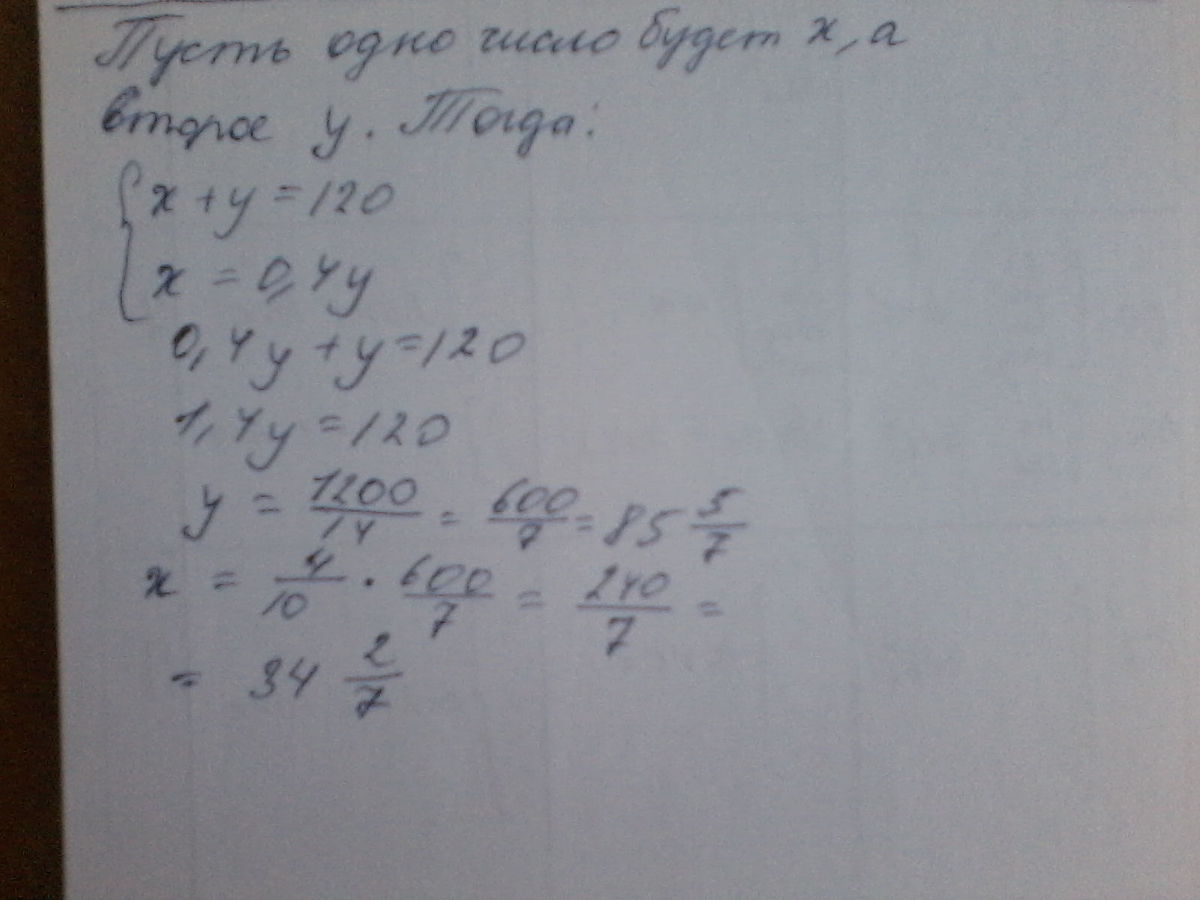 Пусть одно число будет x, а
второе y. Тогда:
{x + y = 120
x = 0,4y
0,4y + y = 120
1,4y = 120
y = 1200/14 = 600/7 = 85 5/7
x = 4/10 · 600/7 = 240/7 =
= 34 2/7